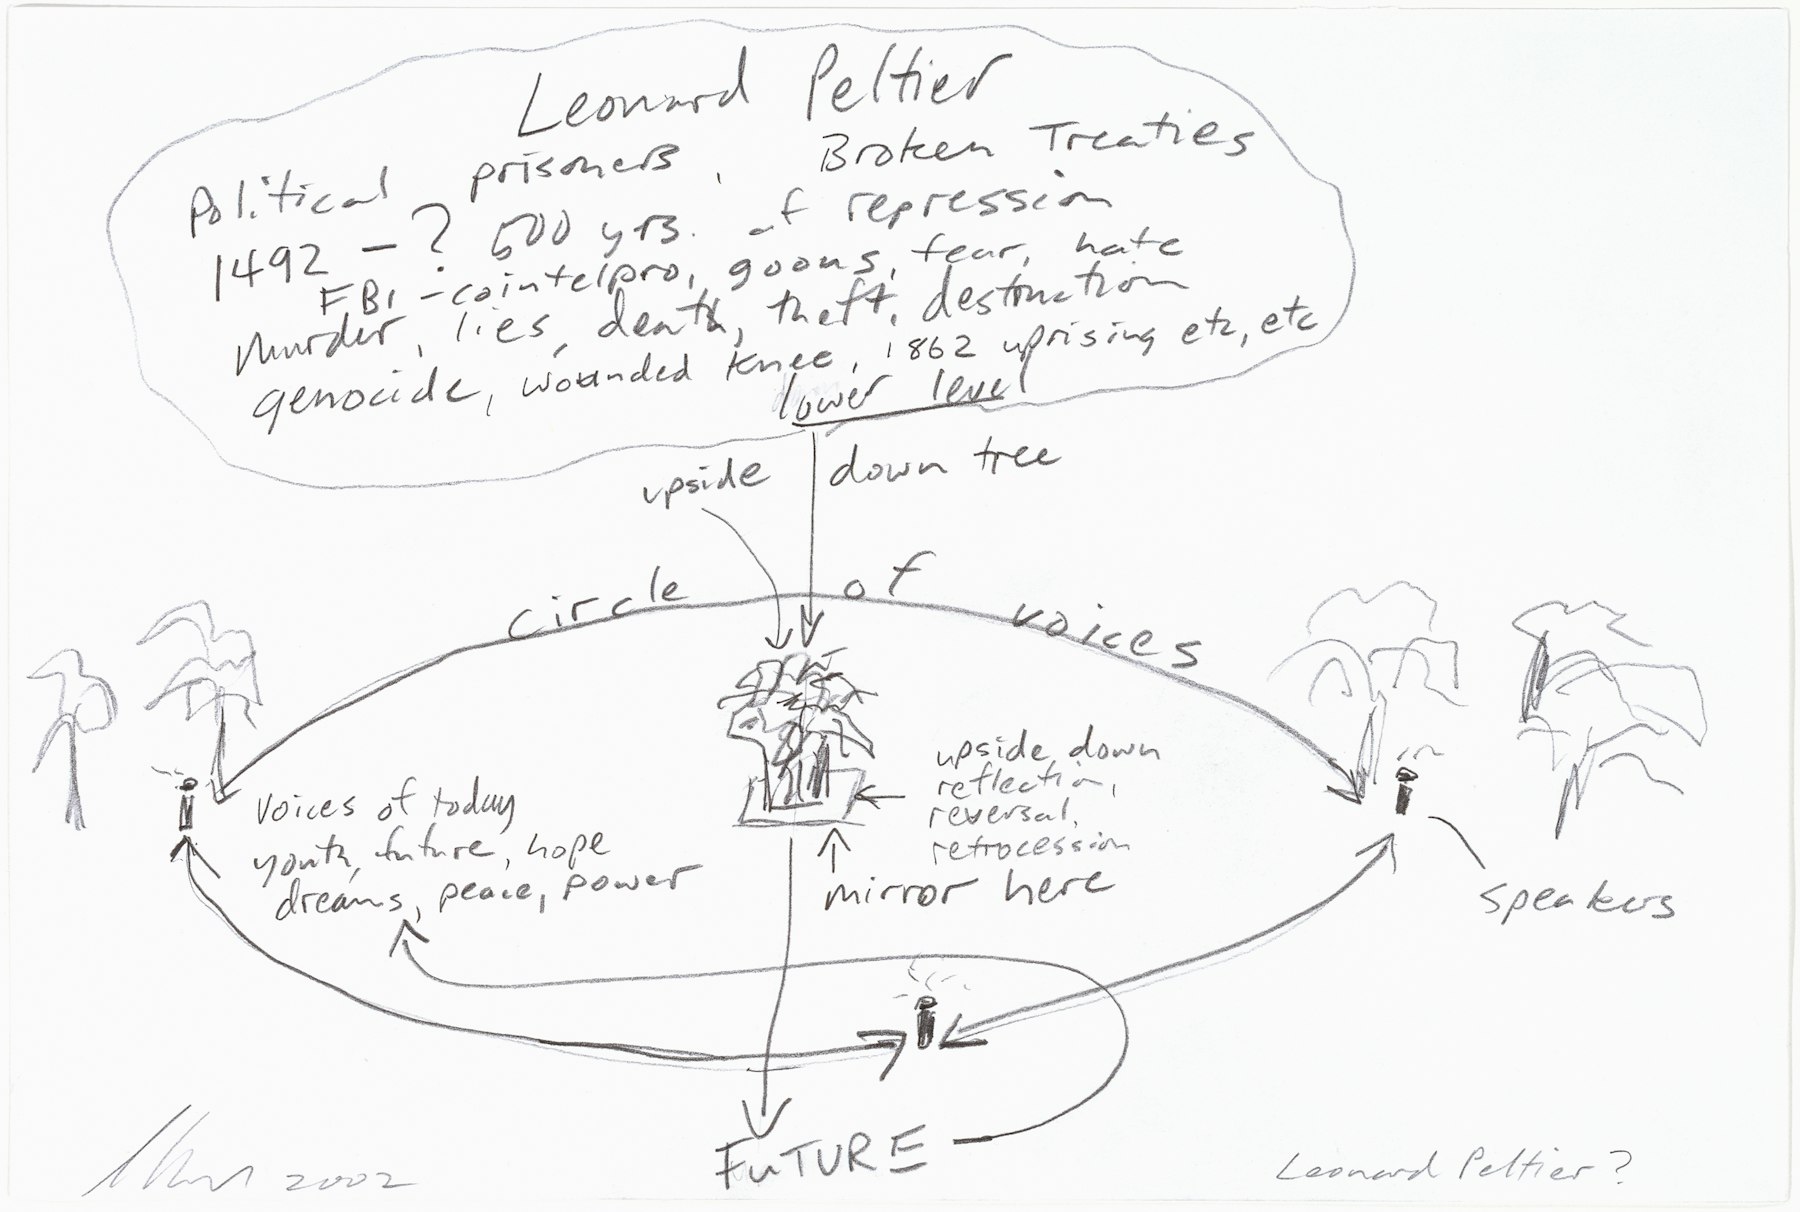 Leonard Peltier
Political prisoners, Broken Treaties
1492 - ? 500 yrs. of repression
FBI - cointelpro, goons, fear, hate
Murder, lies, death, theft, destruction
genocide, wounded knee, 1862 uprising etc, etc
lower level
upside down tree
circle of voices
voices of today
youth, future, hope
dreams, peace, power
upside down
reflection,
reversal,
retrocession
mirror here
speakers
FUTURE
2002
Leonard Peltier?